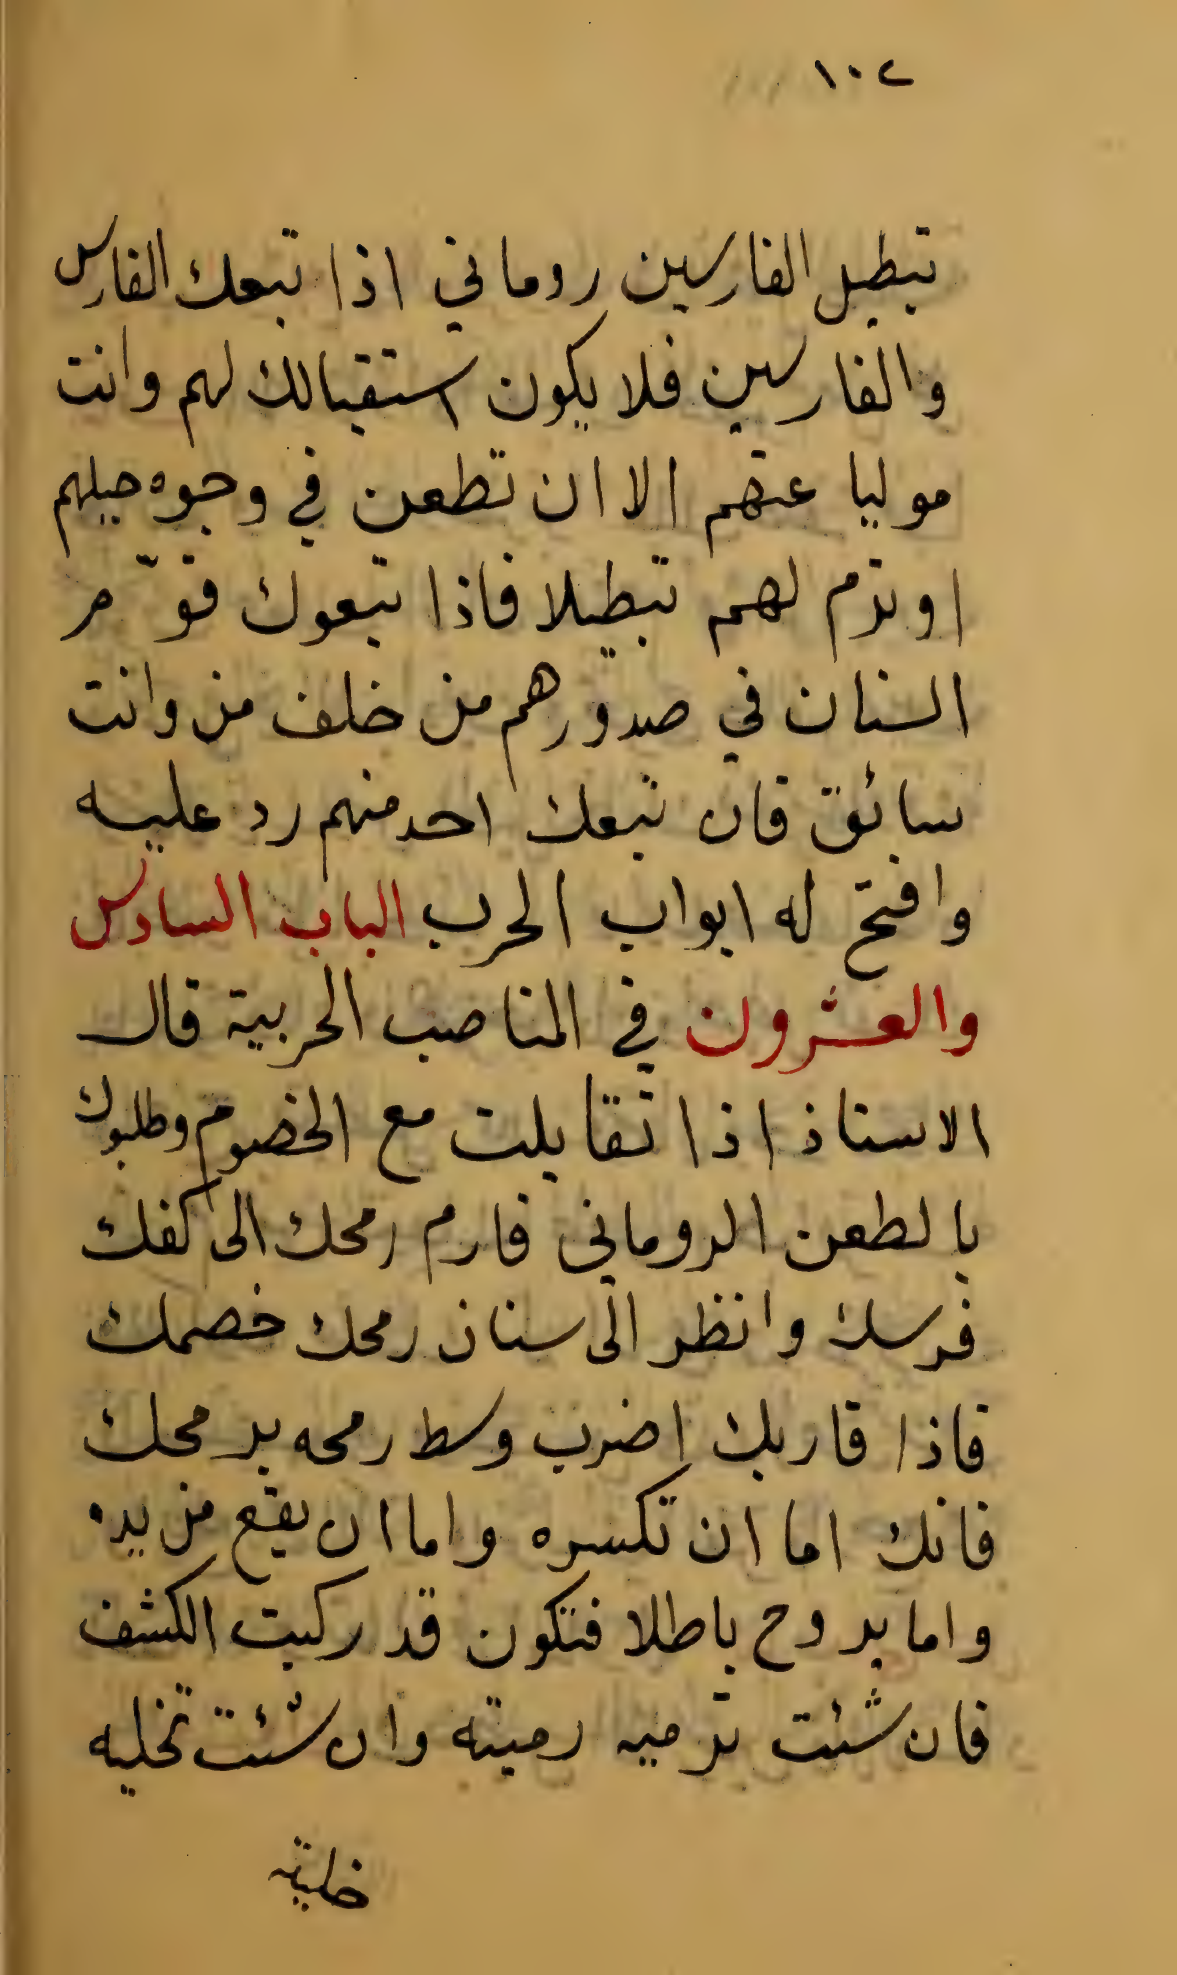 ١٠٢
تبطيل الفارسين روماني اذا تبعك الفارس
والفارسين فلا يكون استقبالك لهم وانت
موليا عنهم الا ان تطعن في وجوه خيلهم
او ترم لهم تبطيلا فاذا تبعوك قوّم
السنان في صدورهم من خلف من وانت
سائق فان تبعك احد منهم رد عليه
وافتح له ابواب الحرب الباب السادس
والعشرون في المناصب الحربية قال
الاستاذ اذا تقابلت مع الخصوم وطلبوك
بالطعن الروماني فارم رمحك الى كفك
فرسك وانظر الى سنان رمحك خصمك
فاذا قاربك اضرب وسط رمحه برمحك
فانك اما ان تكسره واما ان يقع من يده
واما يروح باطلا فتكون قد ركبت الكشف
فان شئت ترميه رميته وان شئت تخليه
خليته